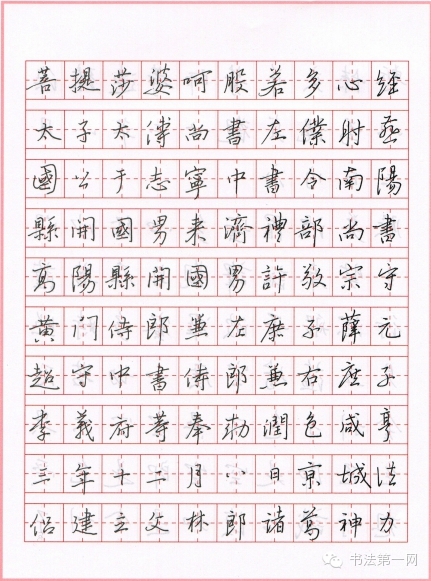 菩提莎婆呵般若多心經
太子太傅尚書左僕射燕
國公于志寧中書令南陽
縣開國男来濟禮部尚書
高陽縣開國男許敬宗守
黄门侍郎兼左庶子薛元
超守中書侍郎兼右庶子
李義府等奉勅潤色咸亨
三年十二月八日京城法
侣建立文林郎諸葛神力
书法第一网